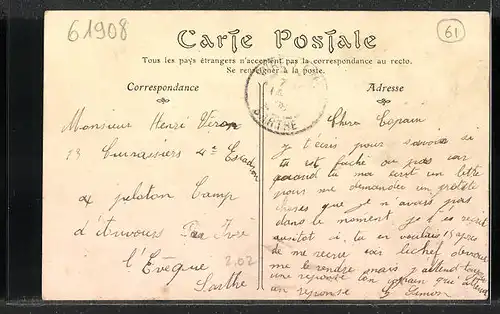 61908
61
Carte Postale
Tous les pays étrangers n'acceptent pas la correspondance au recto.
Se renseigner à la poste.
Correspondance
Adresse
SARTHE
Monsieur Henri Véron
13 Cuirassiers 4e Escadron
4 peloton Camp
d'Auvours Par Ivré
l'Evêque
Sarthe
2.02
Cher Copain
J t'écris pour savoir si
tu est faché ou pas car
quand tu ma écrit un lettre
pour me demander un
choses que je n'avais pas
dans le moment, je t'es
ausitot si tu en voulais 15 après
de me
me le rendre mais j'attend toujours
une reponse ton copain qui attend
un reponse G Simon